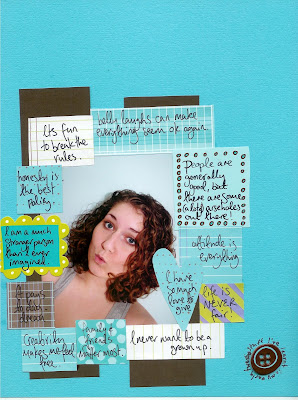 Its fun
to break the
rules.
belly laughs can make
everything seem ok again.
honesty is
the best
policy.
People are
generally
good, but
there are some
(alots) arseholes
out there!
I am a much
stronger person
than I ever
imagined.
attitude is
everything
I have
so much
love to
give
It pays
to
life is
NEVER
fair!
Creativity
makes me feel
free.
family &
friends
matter most.
I never want to be a
grown up!